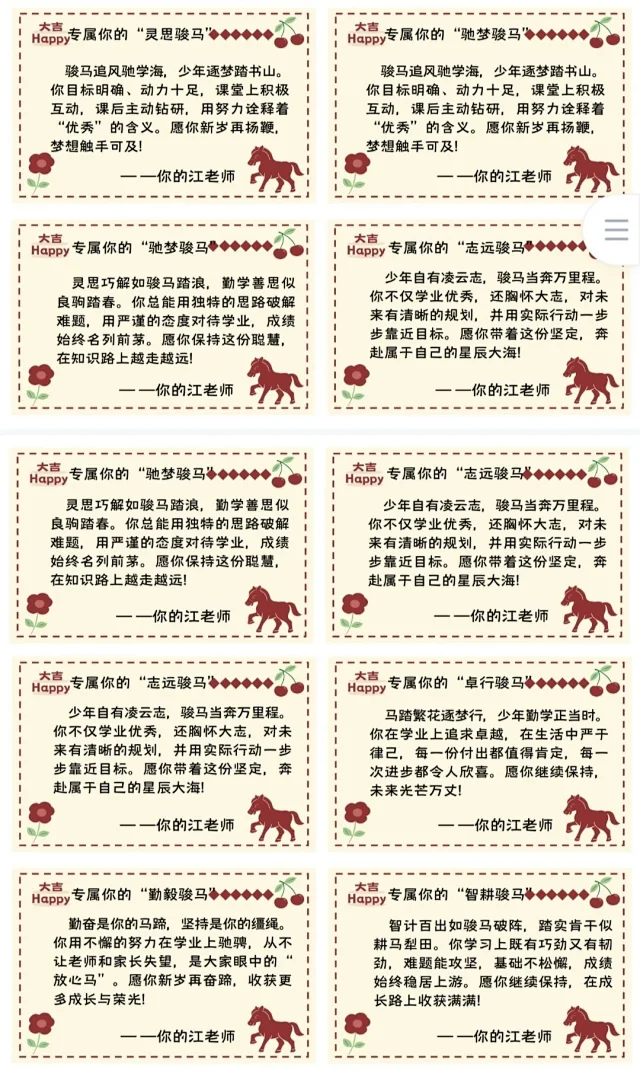 大吉
Happy 专属你的“灵思骏马”
骏马追风驰学海，少年逐梦踏书山。
你目标明确、动力十足，课堂上积极
互动，课后主动钻研，用努力诠释着
“优秀”的含义。愿你新岁再扬鞭，
梦想触手可及!
——你的江老师
大吉
Happy 专属你的“驰梦骏马”
骏马追风驰学海，少年逐梦踏书山。
你目标明确、动力十足，课堂上积极
互动，课后主动钻研，用努力诠释着
“优秀”的含义。愿你新岁再扬鞭，
梦想触手可及!
——你的江老师
大吉
Happy 专属你的“驰梦骏马”
灵思巧解如骏马踏浪，勤学善思似
良驹踏春。你总能用独特的思路破解
难题，用严谨的态度对待学业，成绩
始终名列前茅。愿你保持这份聪慧，
在知识路上越走越远!
——你的江老师
大吉
Happy 专属你的“志远骏马”
少年自有凌云志，骏马当奔万里程。
你不仅学业优秀，还胸怀大志，对未
来有清晰的规划，并用实际行动一步
步靠近目标。愿你带着这份坚定，奔
赴属于自己的星辰大海!
——你的江老师
大吉
Happy 专属你的“驰梦骏马”
灵思巧解如骏马踏浪，勤学善思似
良驹踏春。你总能用独特的思路破解
难题，用严谨的态度对待学业，成绩
始终名列前茅。愿你保持这份聪慧，
在知识路上越走越远!
——你的江老师
大吉
Happy 专属你的“志远骏马”
少年自有凌云志，骏马当奔万里程。
你不仅学业优秀，还胸怀大志，对未
来有清晰的规划，并用实际行动一步
步靠近目标。愿你带着这份坚定，奔
赴属于自己的星辰大海!
——你的江老师
大吉
Happy 专属你的“志远骏马”
少年自有凌云志，骏马当奔万里程。
你不仅学业优秀，还胸怀大志，对未
来有清晰的规划，并用实际行动一步
步靠近目标。愿你带着这份坚定，奔
赴属于自己的星辰大海!
——你的江老师
大吉
Happy 专属你的“卓行骏马”
马踏繁花逐梦行，少年勤学正当时。
你在学业上追求卓越，在生活中严于
律己，每一份付出都值得肯定，每一
次进步都令人欣喜。愿你继续保持，
未来光芒万丈!
——你的江老师
大吉
Happy 专属你的“勤毅骏马”
勤奋是你的马蹄，坚持是你的缰绳。
你用不懈的努力在学业上驰骋，从不
让老师和家长失望，是大家眼中的“
放心马”。愿你新岁再奋蹄，收获更
多成长与荣光!
——你的江老师
大吉
Happy 专属你的“智耕骏马”
智计百出如骏马破阵，踏实肯干似
耕马犁田。你学习上既有巧劲又有韧
劲，难题能攻坚，基础不松懈，成绩
始终稳居上游。愿你继续保持，在成
长路上收获满满!
——你的江老师